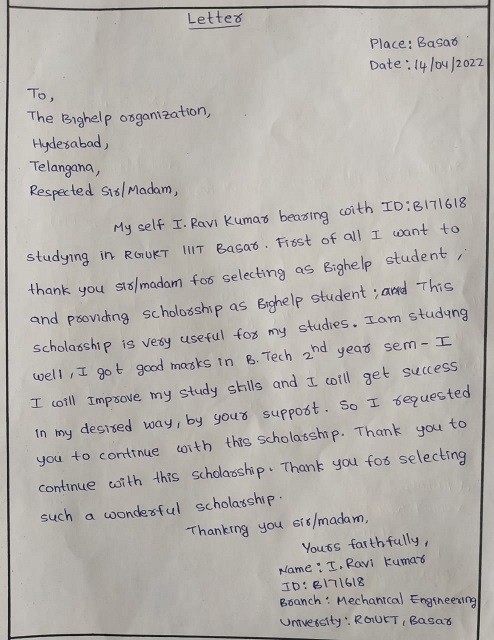 Letter
Place: Basar
Date: 14/04/2022
To,
The Bighelp organization,
Hyderabad,
Telangana,
Respected Sir/Madam,
My self I. Ravi Kumar bearing with ID: B171618
studying in RGUKT IIIT Basar. First of all I want to
thank you sir/madam for selecting as Bighelp student,
and providing scholorship as Bighelp student; and This
scholarship is very useful for my studies. Iam studyng
well, I got good marks in B.Tech 2nd year sem-I
I will Improve my study skills and I will get success
In my desired way, by your support. So I requested
you to continue with this scholarship. Thank you to
continue with this scholarship. Thank you for selecting
such a wonderful scholarship.
Thanking you sir/madam,
Yours faithfully,
Name: I. Ravi Kumar
ID: B171618
Branch: Mechanical Engineering
University: RGUKT, Basar